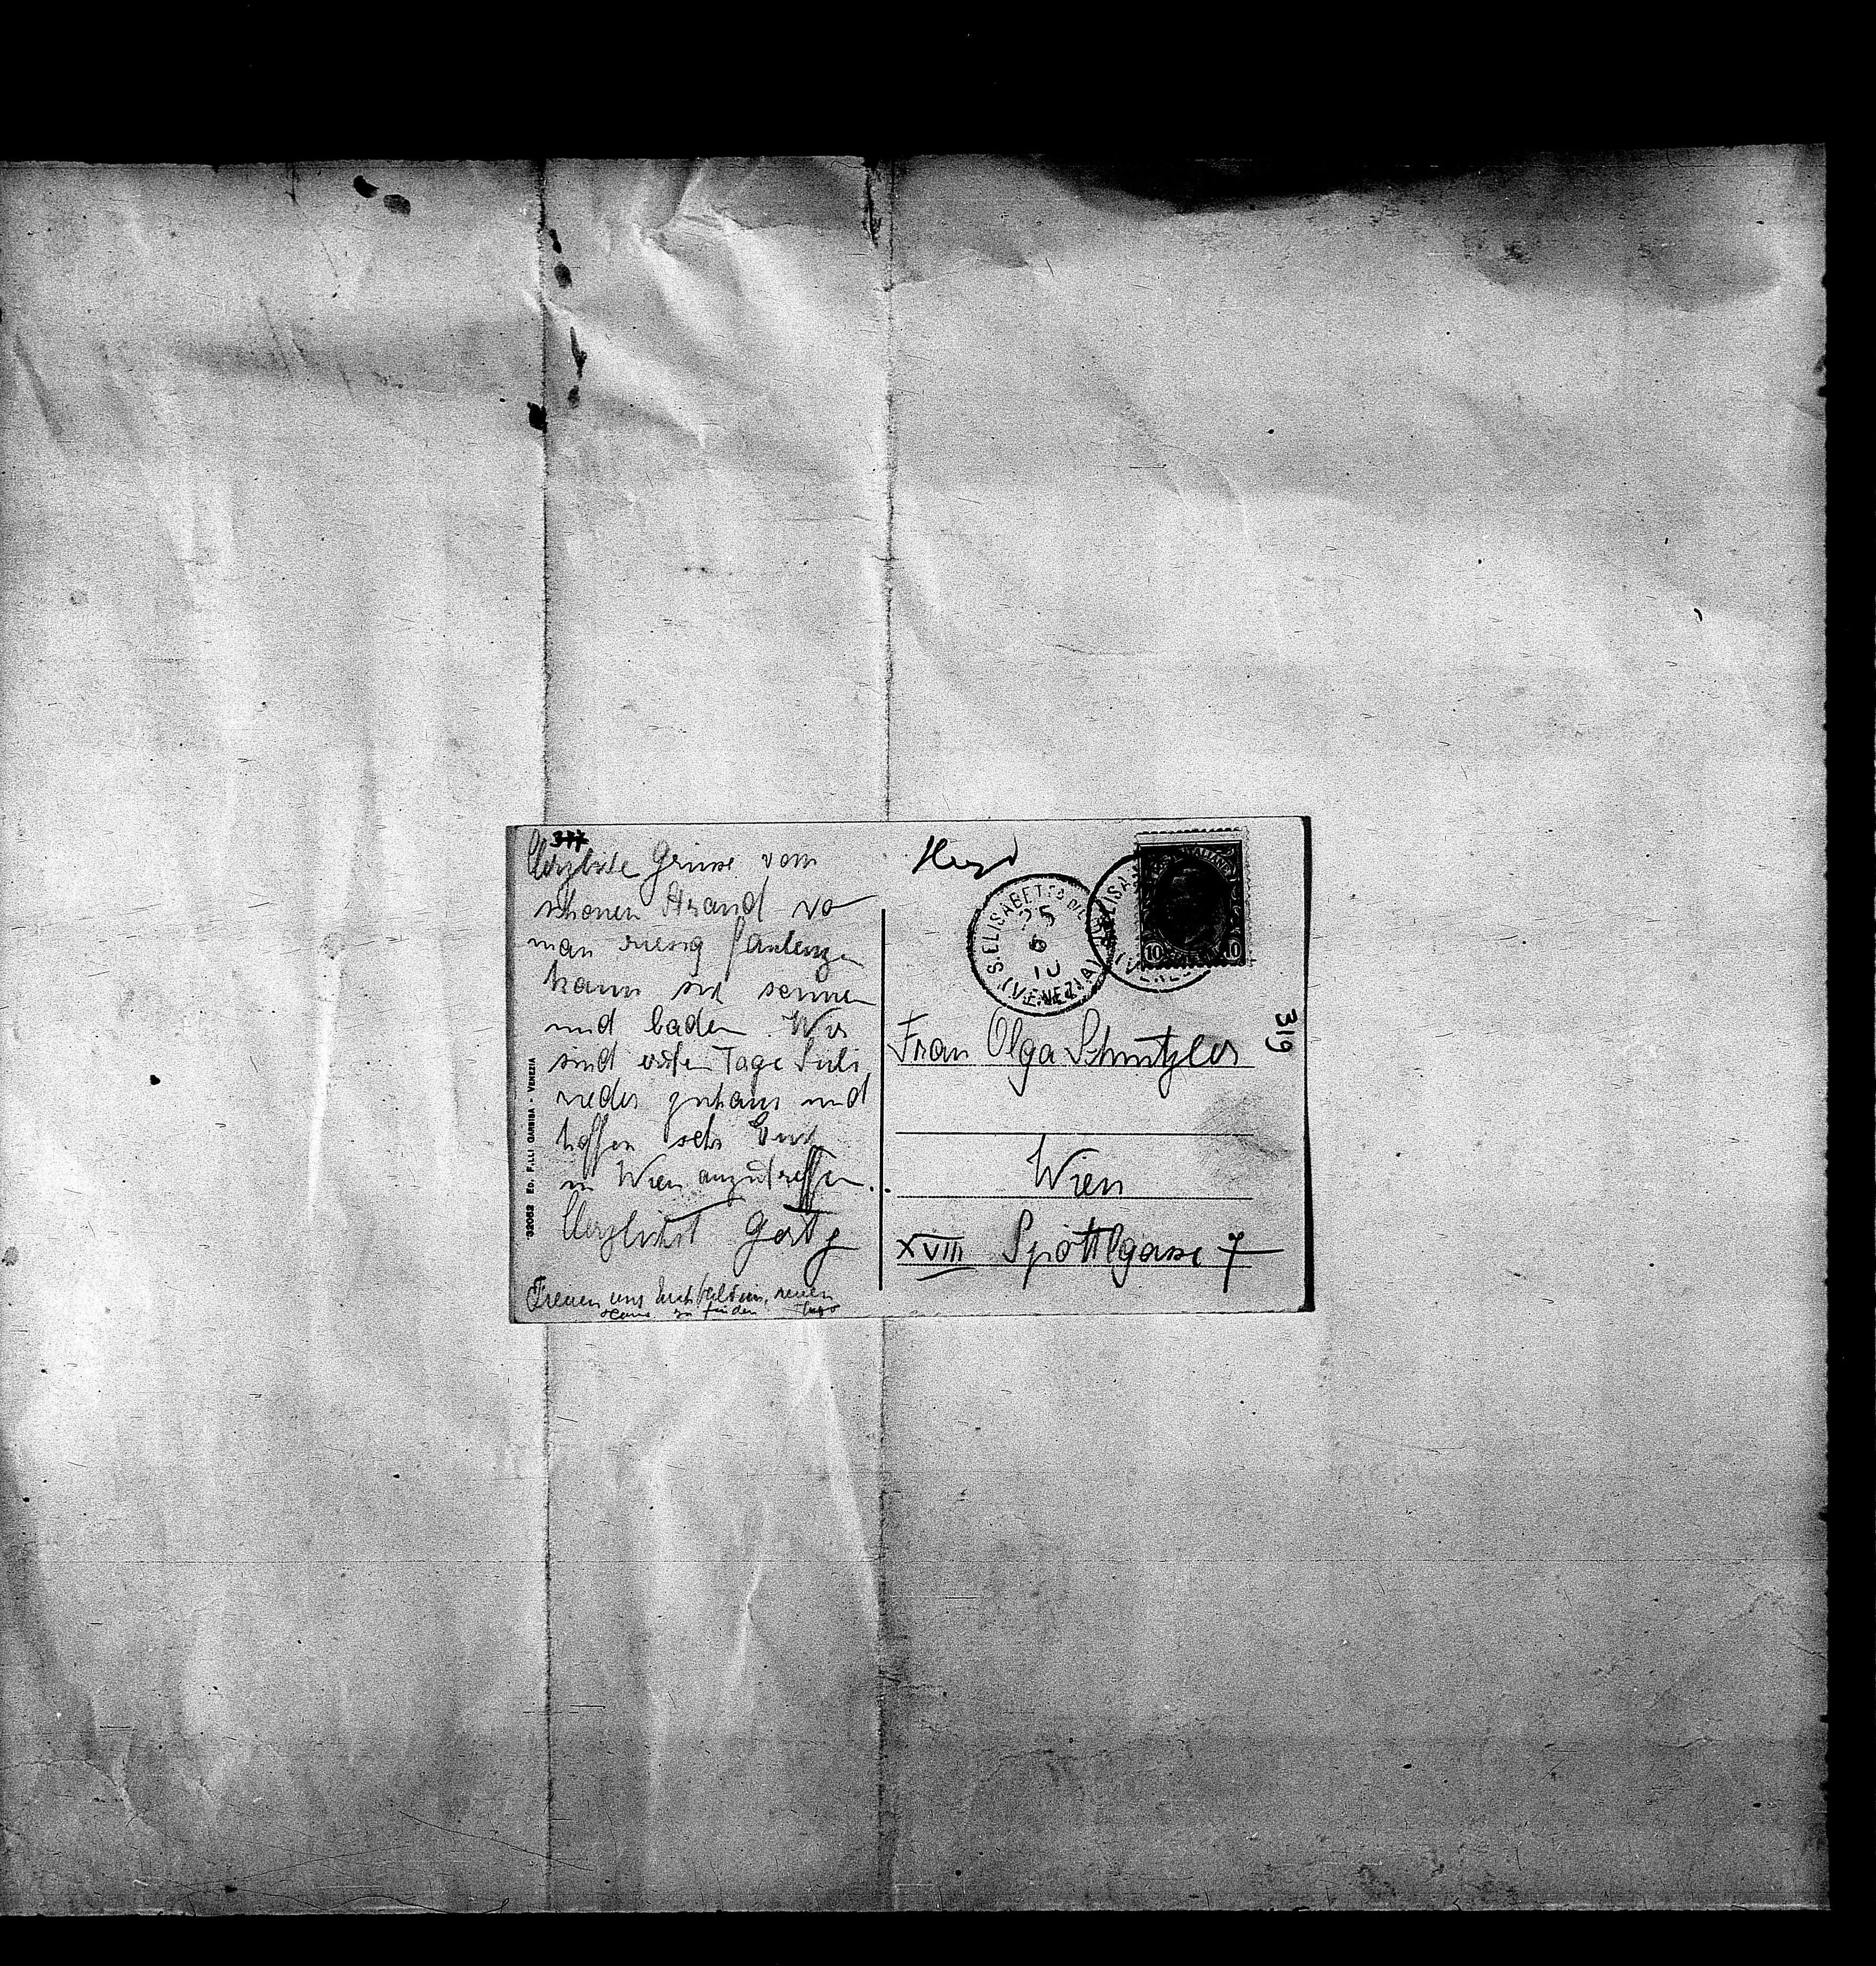 377
Herzlichste Grüsse vom
schönen Strand wo
man riesig faulenzen
kann und sonnen
und baden. Wir
sind erste Tage Juli
wieder zuhaus und
hoffen sehr Euch
in Wien anzutreffen.
Herzlichst Gerty
Freuen uns Euch bald im neuen
Haus zu finden Hugo
32062 ED. F.LLI GARBISA - VENEZIA
S. ELISABETTA DI
25
6
10
(VENEZIA)
10 10
319
Frau Olga Schnitzler
Wien
XVIII Spöttlgasse 7